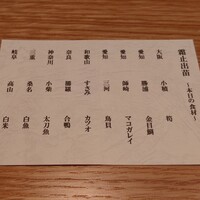 霜止出苗
~本日の食材~
大阪 木積 筍
勝浦 金目鯛
愛知 師崎 マコガレイ
愛知 三河 鳥貝
和歌山 すさみ カツオ
奈良 葛城 合鴨
神奈川 小柴 太刀魚
三重 桑名 白魚
岐阜 高山 白米